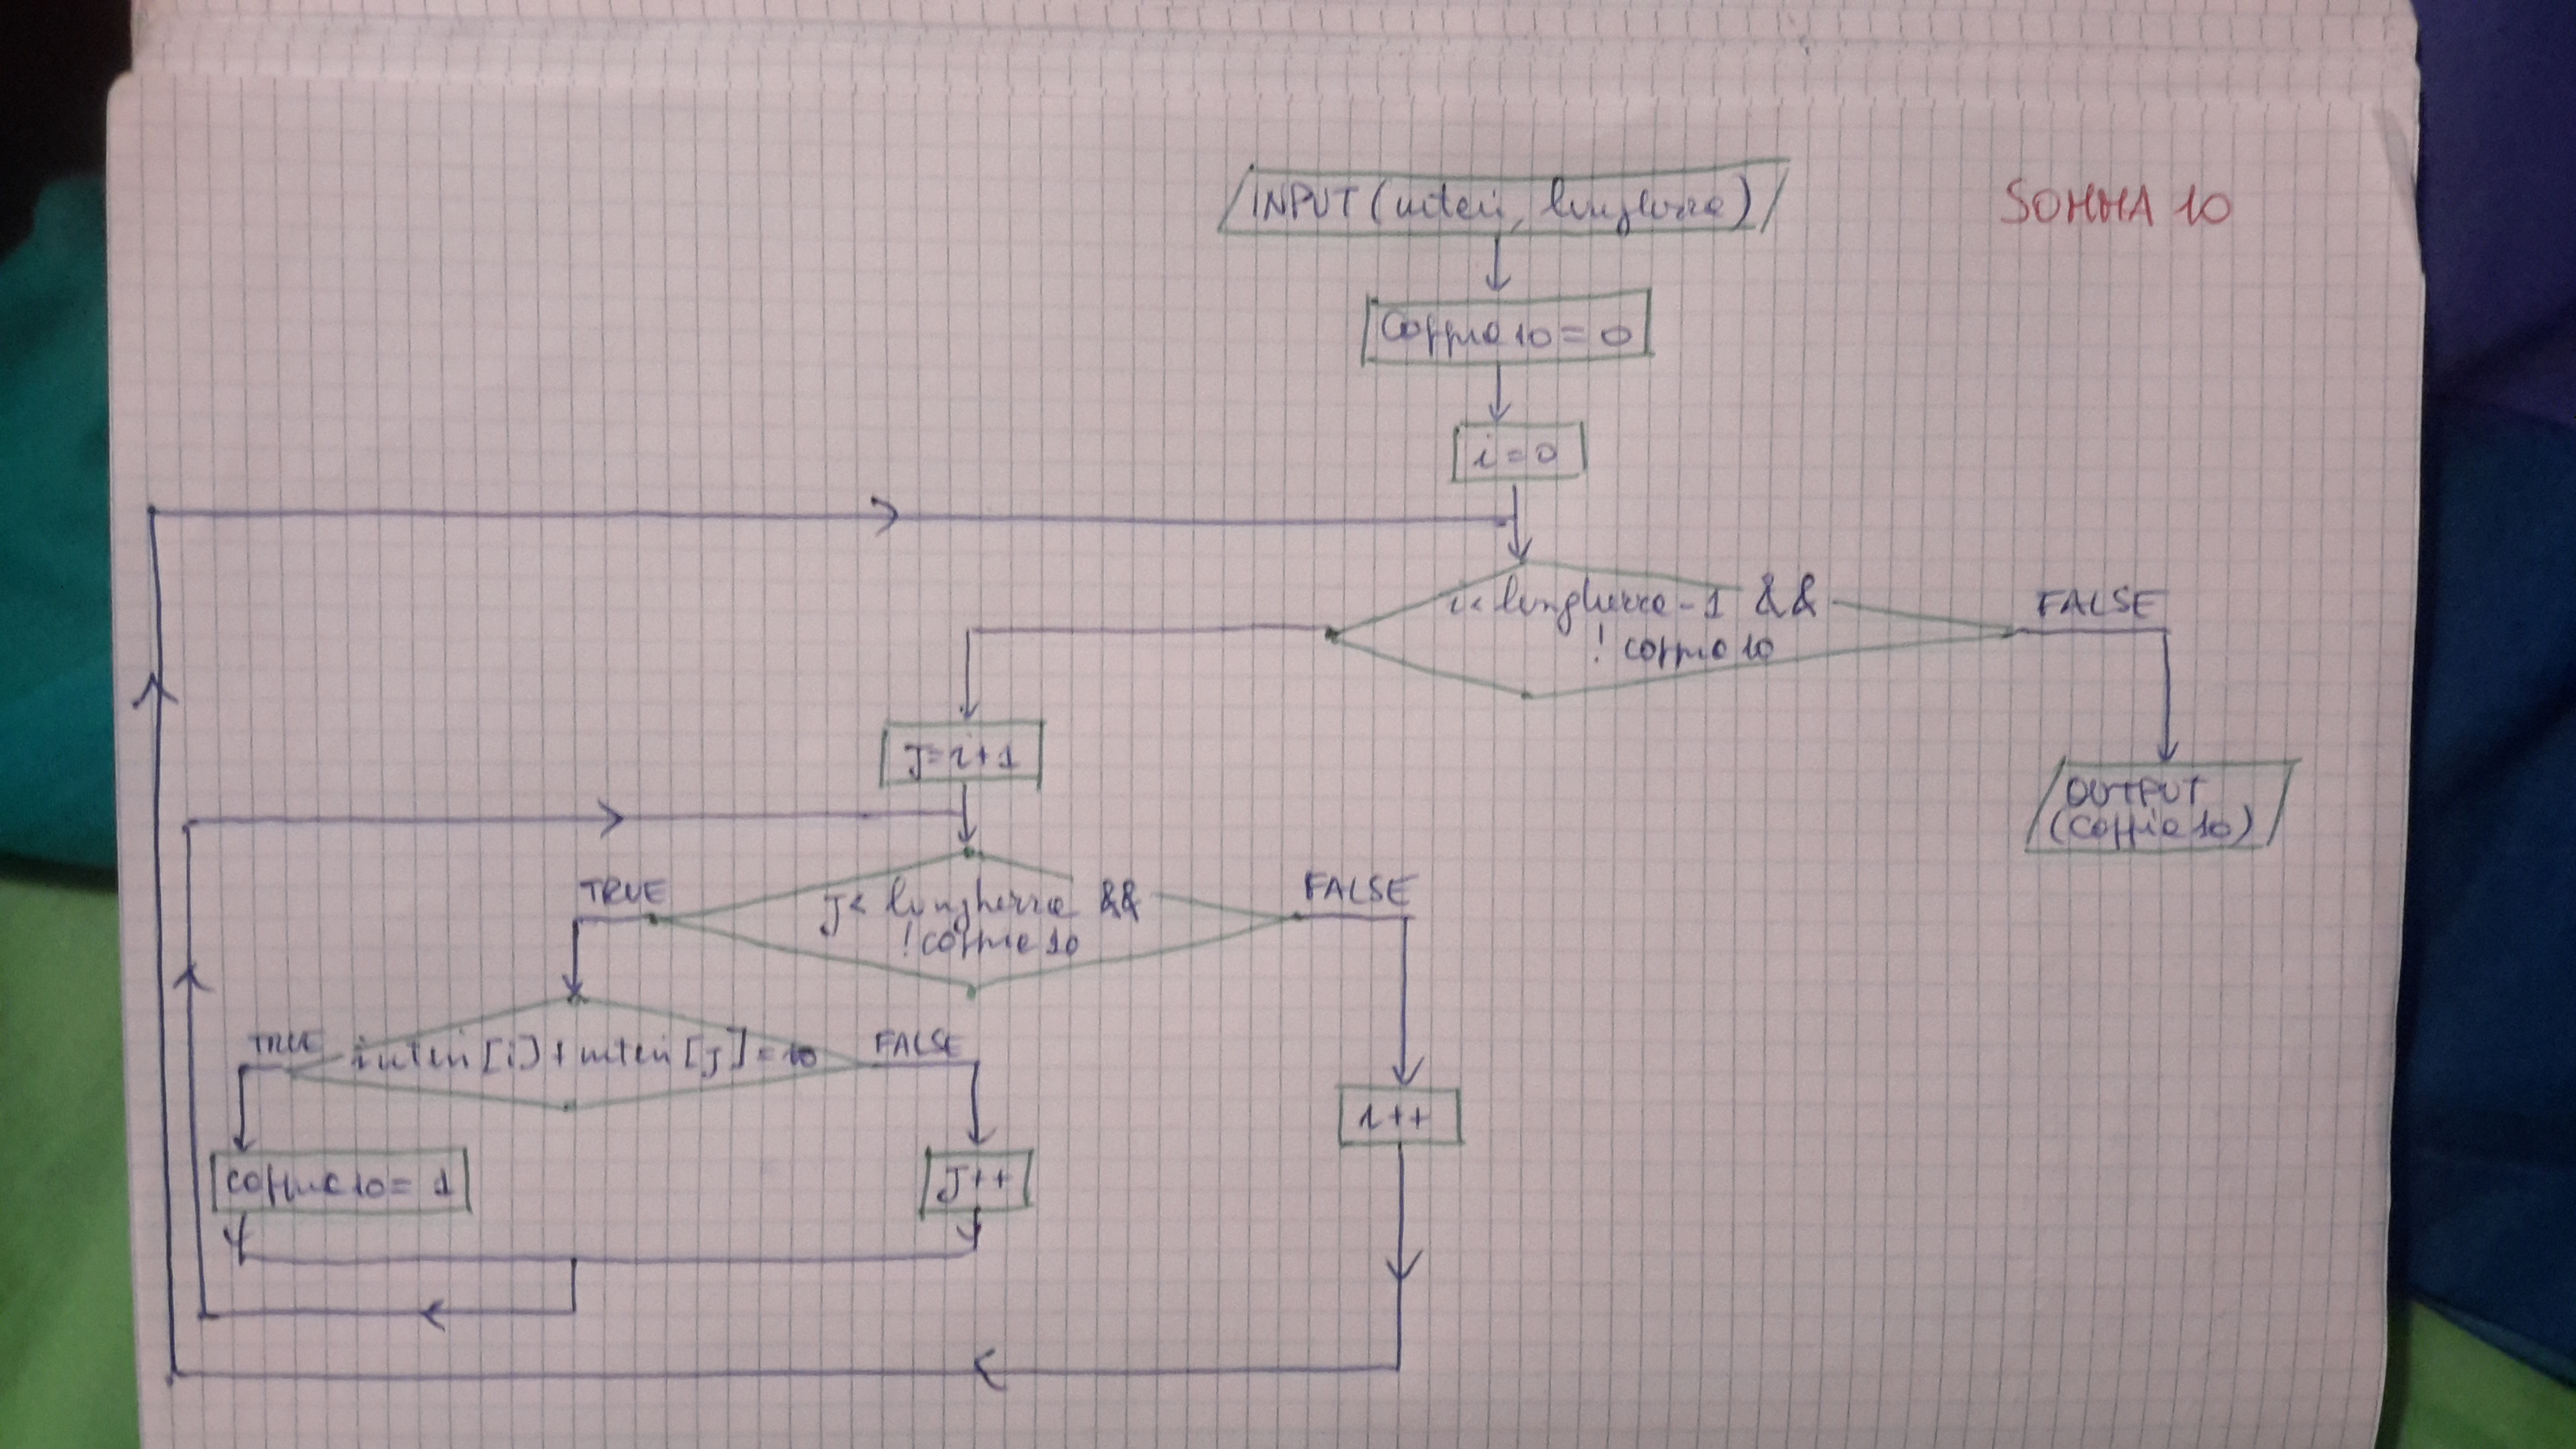 INPUT (interi, lunghezza)
SOMMA 10
Coppia10 = 0
i=0
i< lunghezza-1 &&
! coppia10
FALSE
J=i+1
OUTPUT
(coppia10)
TRUE
J< lunghezza &&
!coppia10
FALSE
TRUE
interi[i]+interi[j]=10
FALSE
i++
coppia10= 1
J++